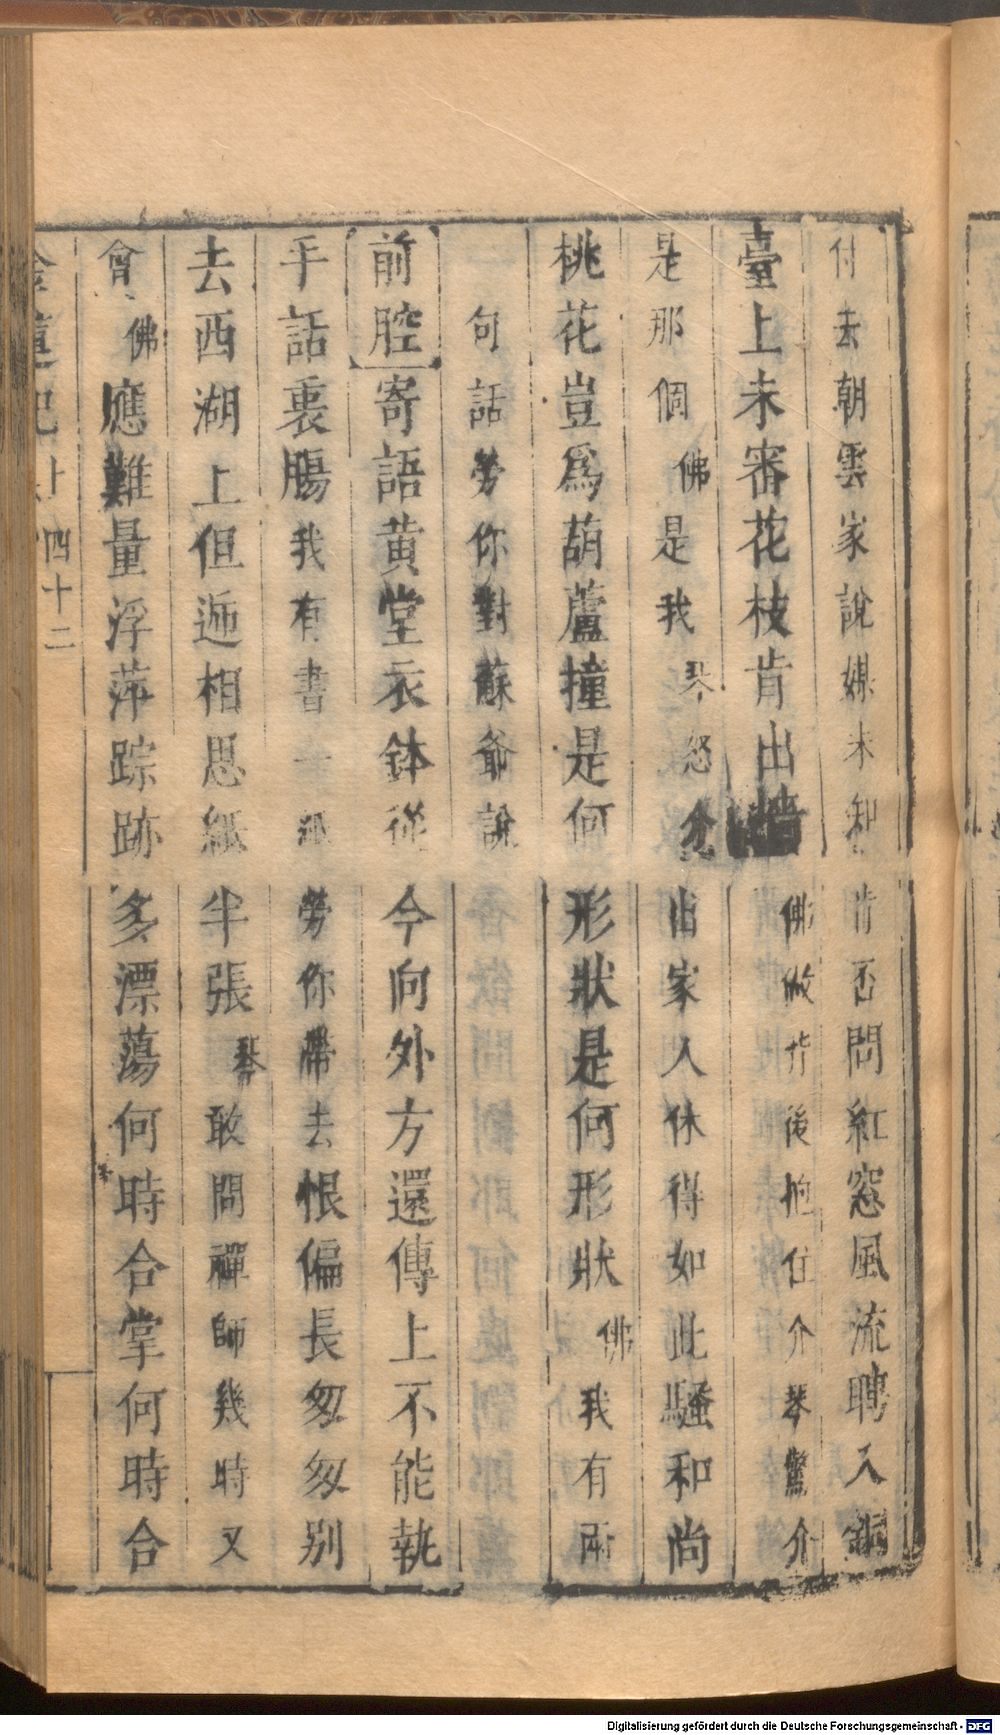 付去朝雲家說媒未知肯否問紅窓風流聘入銅
臺上未審花枝肯出墻佛做背後抱住介琴驚介
是那個佛是我琴怒介出家人休得如此騷和尚
桃花豈爲葫蘆撞是何形狀是何形狀佛我有兩
句話勞你對蘇爺說
前腔寄語黄堂衣鉢從今向外方還傳上不能執
手話衷腸我有書一紙勞你帶去恨偏長匆匆别
去西湖上但遞相思紙半張琴敢問禪師幾時又
會佛應難量浮萍踪跡多漂蕩何時合掌何時合
記 四十二
Digitalisierung gefördert durch die Deutsche Forschungsgemeinschaft - DFG